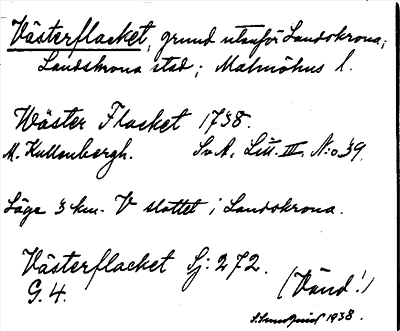 Västerflacket, grund utanför Landskrona;
Landskrona stad; Malmöhus l.
Wäster Flacket 1738.
M. Kullenbergh. SvA. Litt. III. N:o 39.
Läge 3 km. V slottet i Landskrona.
Västerflacket Sj: 272.
G. 4. (Vänd!)
1938.